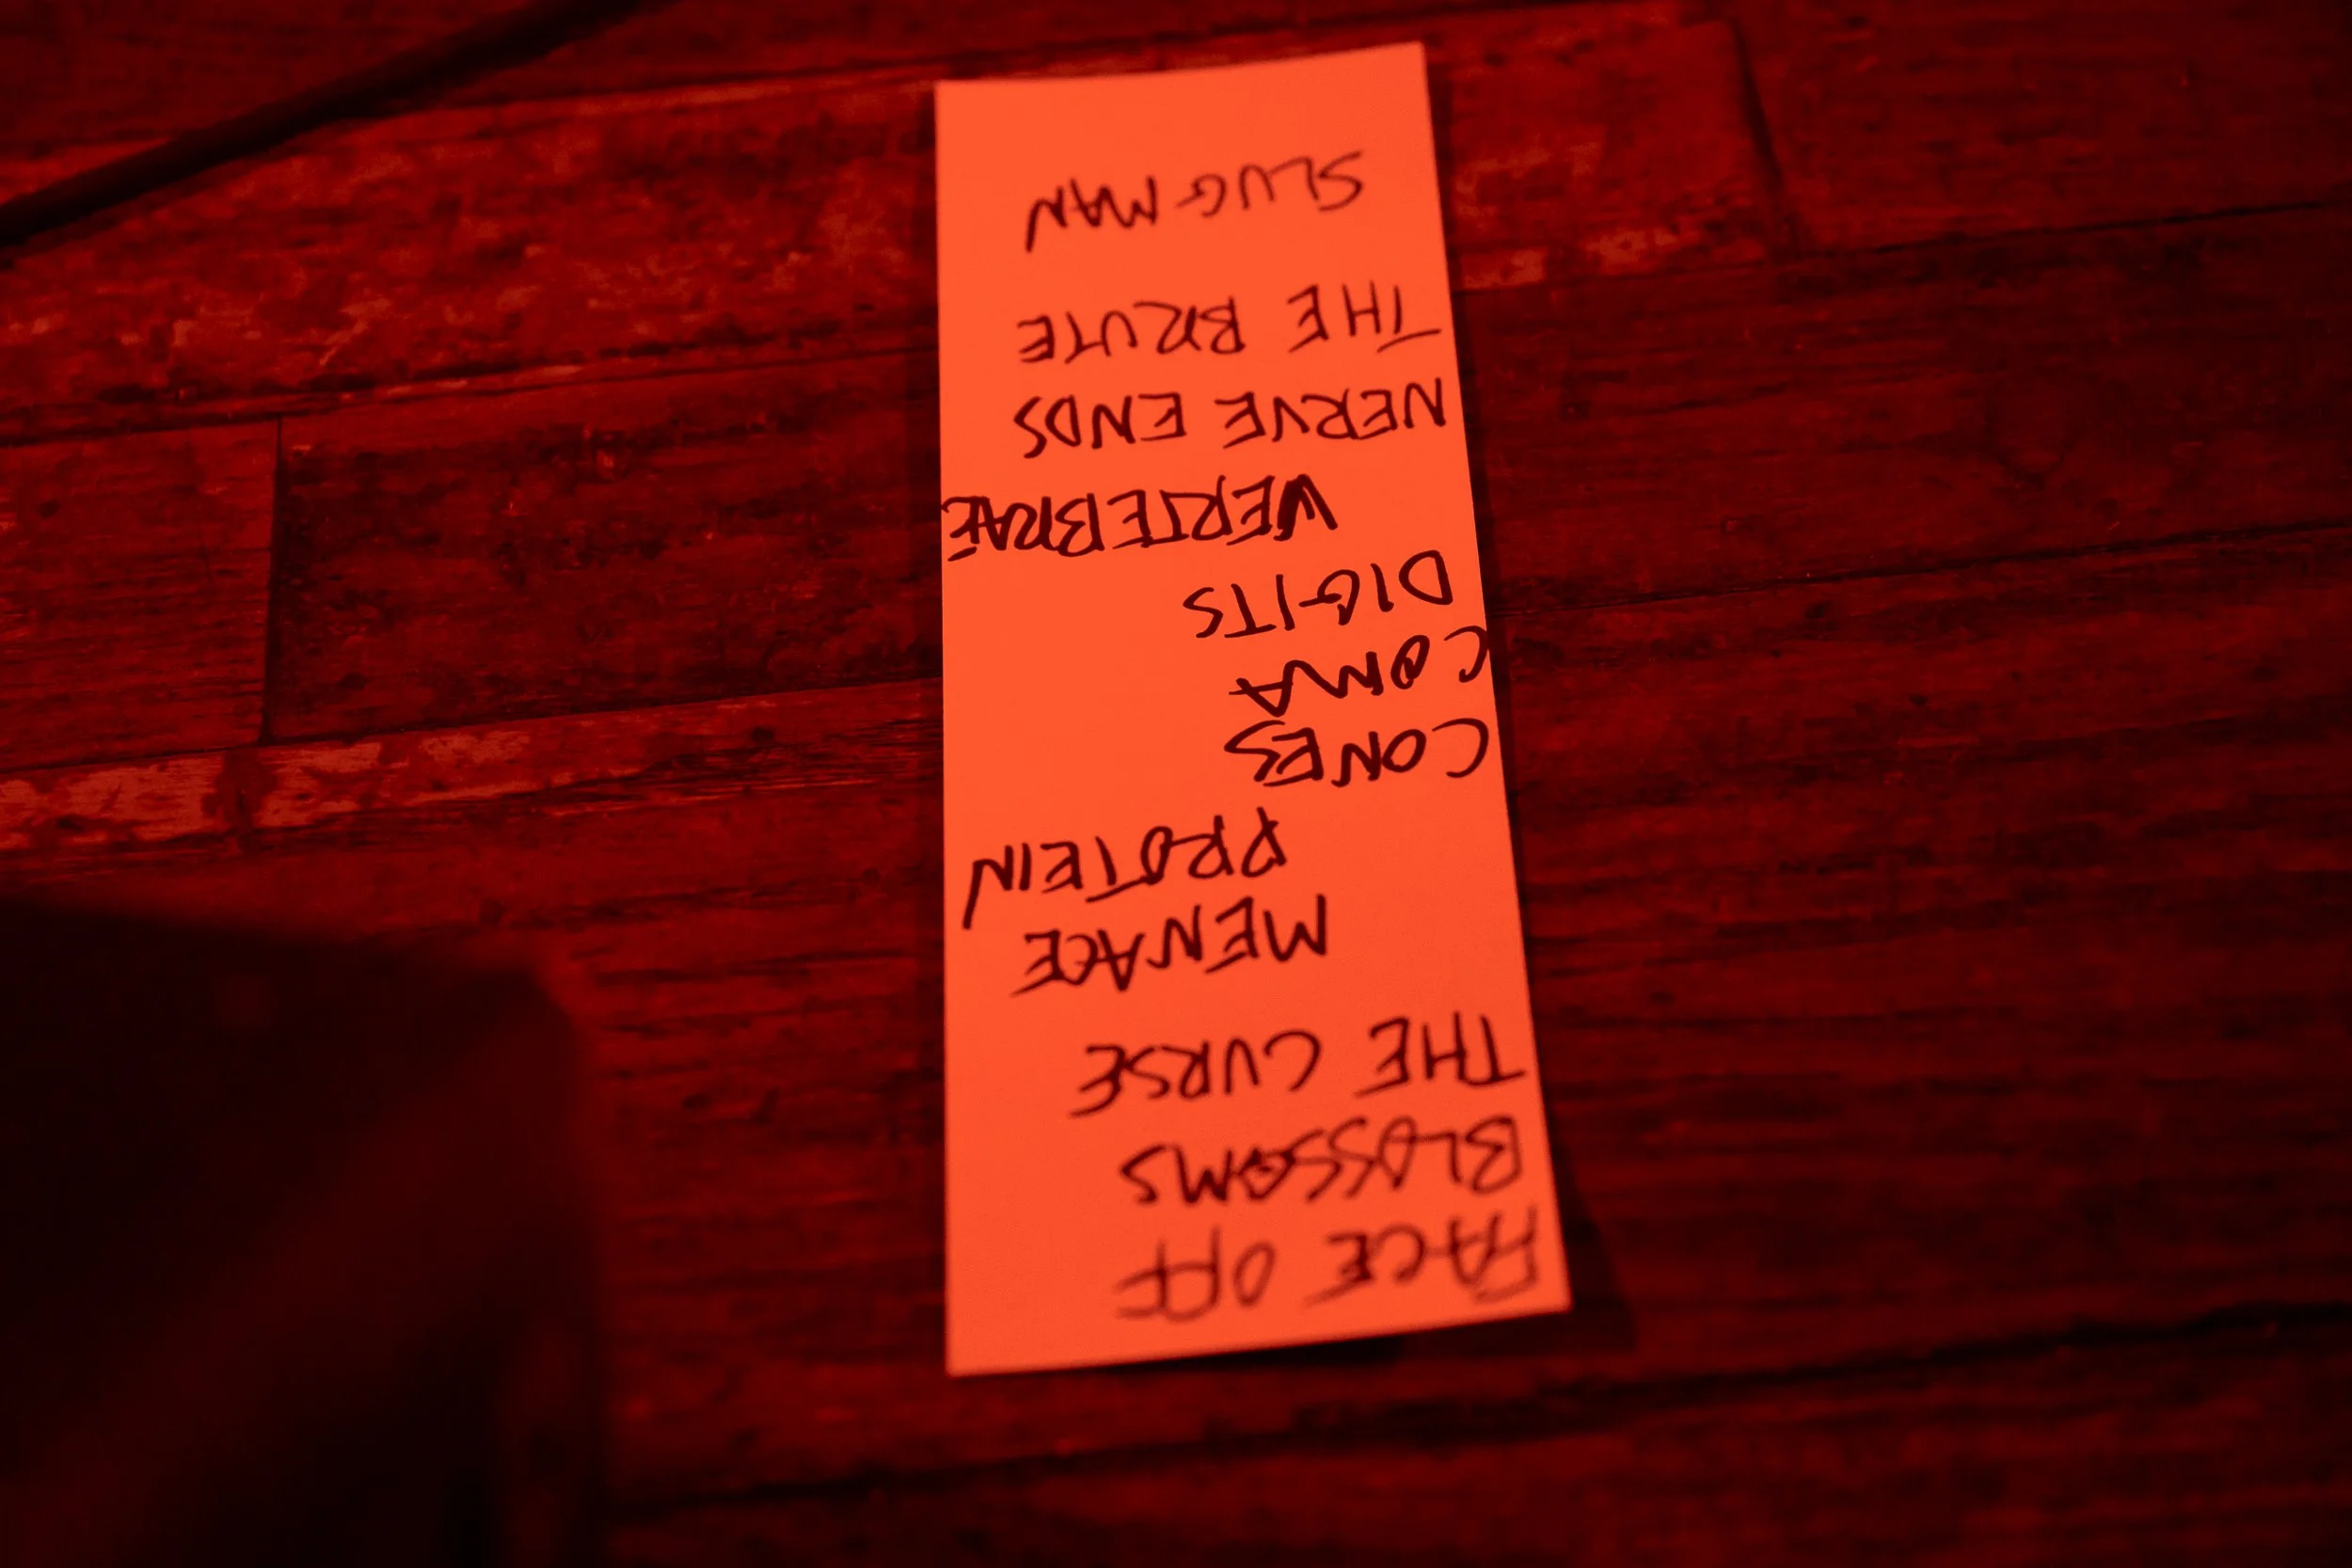 FACE OFF
BLOSSOMS
THE CURSE
MENACE
PROTEIN
CONES
COMA
DIGITS
VERTEBRAE
NERVE ENDS
THE BRUTE
SLUG MAN